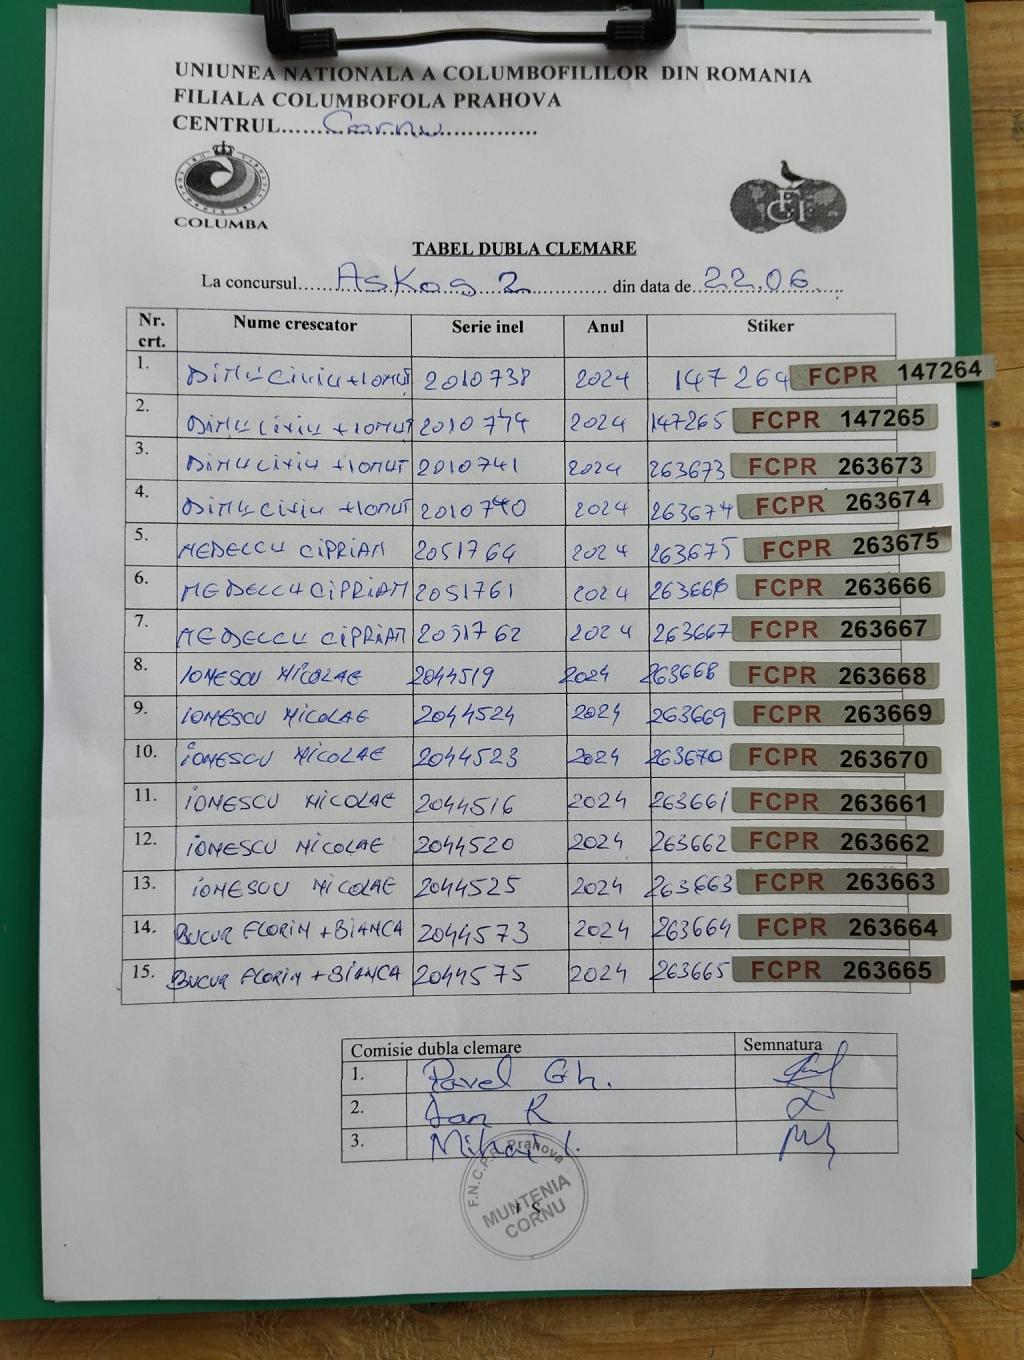 UNIUNEA NATIONALA A COLUMBOFILILOR DIN ROMANIA
FILIALA COLUMBOFOLA PRAHOVA
CENTRUL......Cornu..................
COLUMBA
FCI
TABEL DUBLA CLEMARE
La concursul......Askos 2............... din data de..22.06......
Nr. crt. Nume crescator Serie inel Anul Stiker
1. DIMU LIVIU + IONUT 2010738 2024 147264 FCPR 147264
2. DIMU LIVIU + IONUT 2010744 2024 147265 FCPR 147265
3. DIMU LIVIU + IONUT 2010741 2024 263673 FCPR 263673
4. DIMU LIVIU + IONUT 2010740 2024 263674 FCPR 263674
5. MEDELCU CIPRIAN 2051764 2024 263675 FCPR 263675
6. MEDELCU CIPRIAN 2051761 2024 263666 FCPR 263666
7. MEDELCU CIPRIAN 2051762 2024 263667 FCPR 263667
8. IONESCU NICOLAE 2044519 2024 263668 FCPR 263668
9. IONESCU NICOLAE 2044524 2024 263669 FCPR 263669
10. IONESCU NICOLAE 2044523 2024 263670 FCPR 263670
11. IONESCU NICOLAE 2044516 2024 263661 FCPR 263661
12. IONESCU NICOLAE 2044520 2024 263662 FCPR 263662
13. IONESCU NICOLAE 2044525 2024 263663 FCPR 263663
14. BUCUR FLORIN + BIANCA 2044573 2024 263664 FCPR 263664
15. BUCUR FLORIN + BIANCA 2044575 2024 263665 FCPR 263665
Comisie dubla clemare Semnatura
1. Pavel Gh.
2. Dan R
3. Mihai I.
F.N.C.P.R. Prahova
MUNTENIA
CORNU